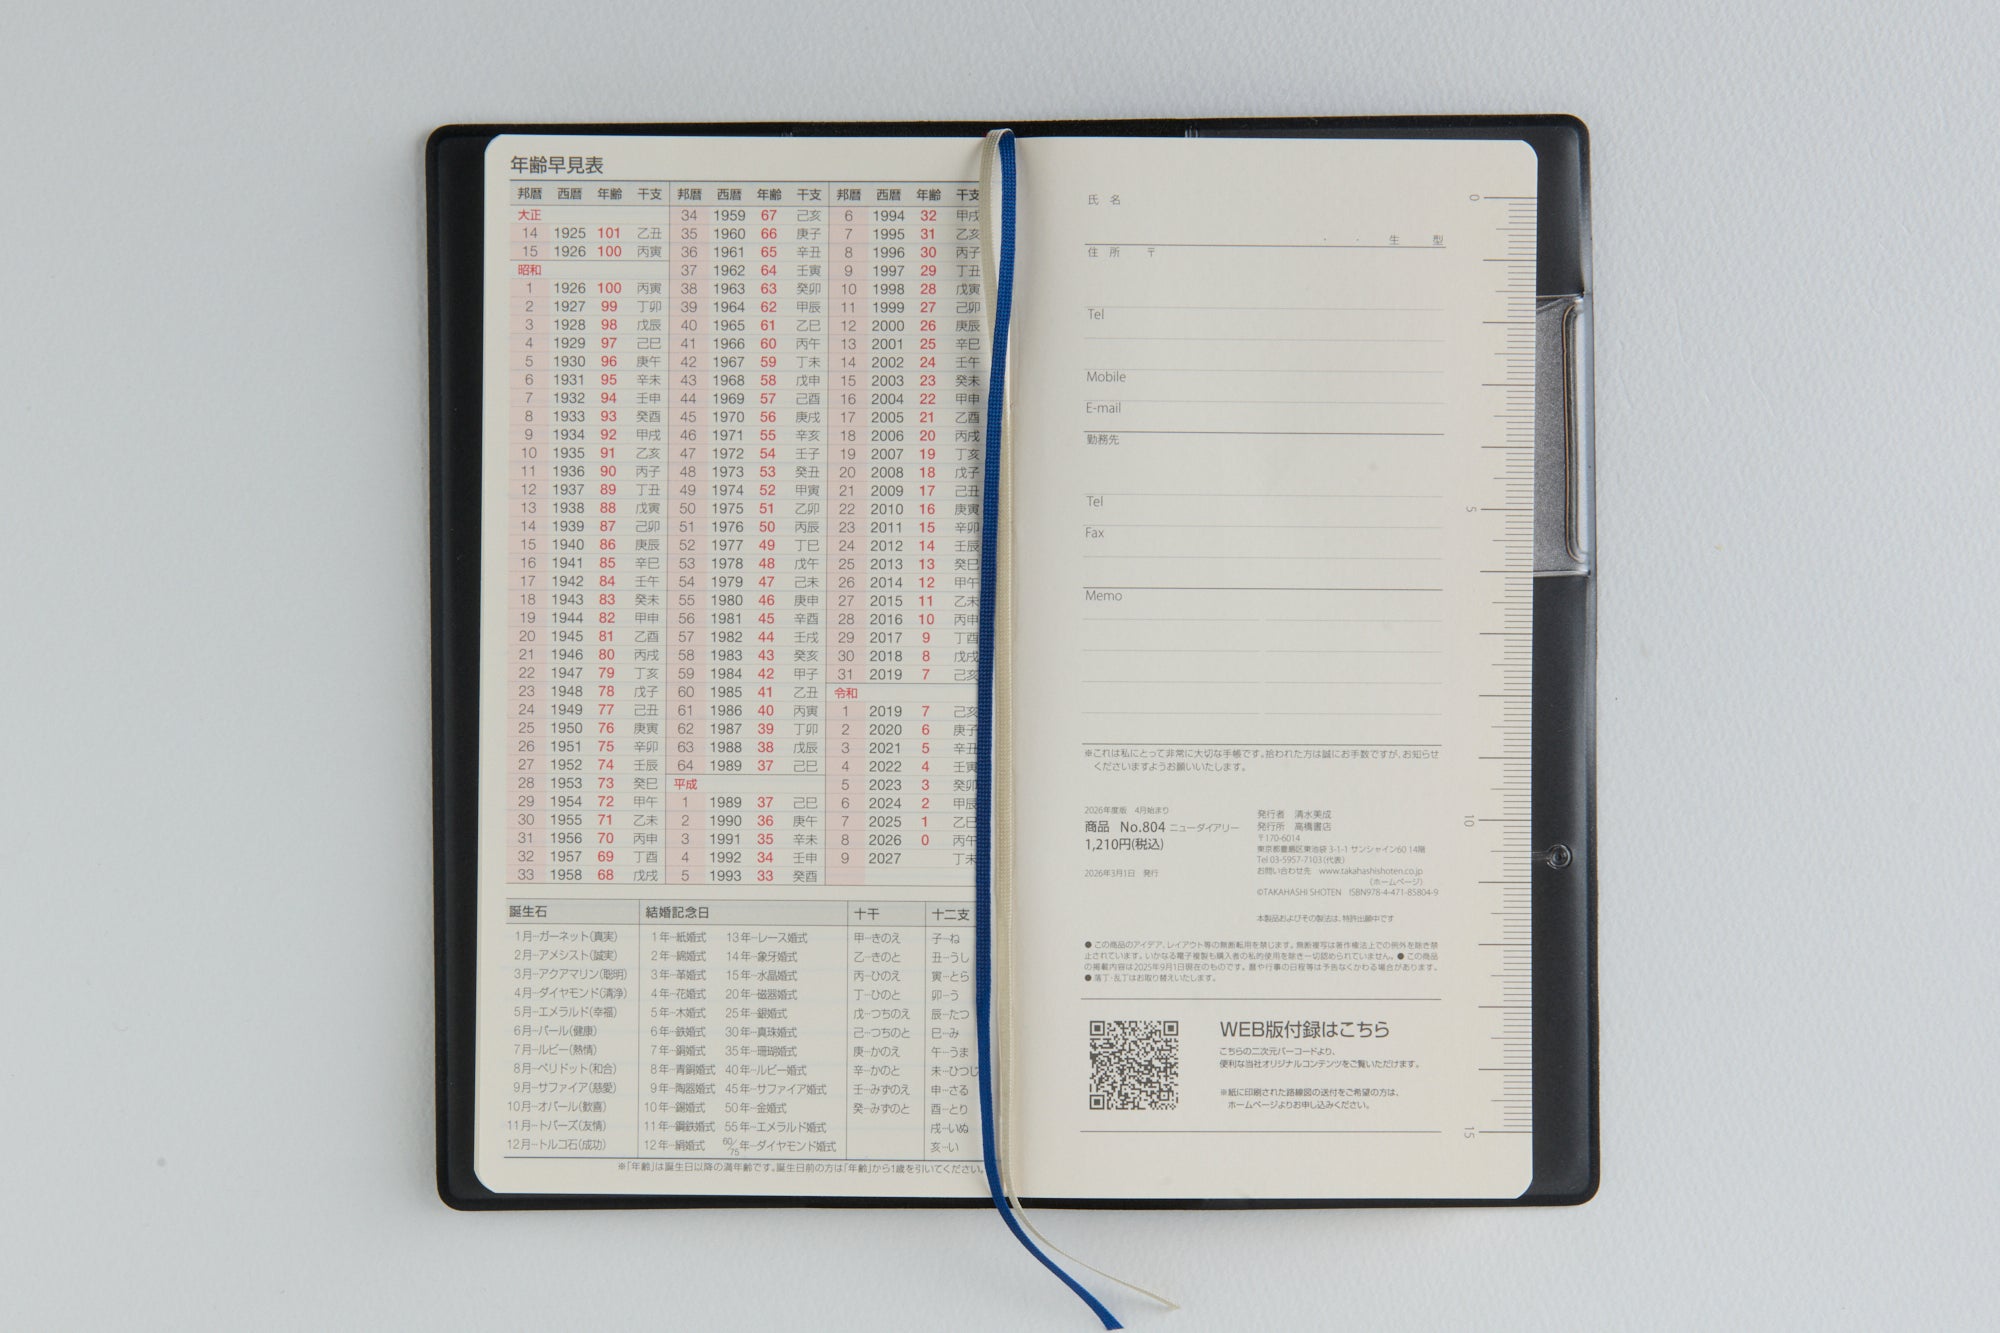 年齢早見表
邦暦 西暦 年齢 干支 邦暦 西暦 年齢 干支 邦暦 西暦 年齢 干支
大正 34 1959 67 己亥 6 1994 32 甲戌
14 1925 101 乙丑 35 1960 66 庚子 7 1995 31 乙亥
15 1926 100 丙寅 36 1961 65 辛丑 8 1996 30 丙子
昭和 37 1962 64 壬寅 9 1997 29 丁丑
1 1926 100 丙寅 38 1963 63 癸卯 10 1998 28 戊寅
2 1927 99 丁卯 39 1964 62 甲辰 11 1999 27 己卯
3 1928 98 戊辰 40 1965 61 乙巳 12 2000 26 庚辰
4 1929 97 己巳 41 1966 60 丙午 13 2001 25 辛巳
5 1930 96 庚午 42 1967 59 丁未 14 2002 24 壬午
6 1931 95 辛未 43 1968 58 戊申 15 2003 23 癸未
7 1932 94 壬申 44 1969 57 己酉 16 2004 22 甲申
8 1933 93 癸酉 45 1970 56 庚戌 17 2005 21 乙酉
9 1934 92 甲戌 46 1971 55 辛亥 18 2006 20 丙戌
10 1935 91 乙亥 47 1972 54 壬子 19 2007 19 丁亥
11 1936 90 丙子 48 1973 53 癸丑 20 2008 18 戊子
12 1937 89 丁丑 49 1974 52 甲寅 21 2009 17 己丑
13 1938 88 戊寅 50 1975 51 乙卯 22 2010 16 庚寅
14 1939 87 己卯 51 1976 50 丙辰 23 2011 15 辛卯
15 1940 86 庚辰 52 1977 49 丁巳 24 2012 14 壬辰
16 1941 85 辛巳 53 1978 48 戊午 25 2013 13 癸巳
17 1942 84 壬午 54 1979 47 己未 26 2014 12 甲午
18 1943 83 癸未 55 1980 46 庚申 27 2015 11 乙未
19 1944 82 甲申 56 1981 45 辛酉 28 2016 10 丙申
20 1945 81 乙酉 57 1982 44 壬戌 29 2017 9 丁酉
21 1946 80 丙戌 58 1983 43 癸亥 30 2018 8 戊戌
22 1947 79 丁亥 59 1984 42 甲子 31 2019 7 己亥
23 1948 78 戊子 60 1985 41 乙丑 令和
24 1949 77 己丑 61 1986 40 丙寅 1 2019 7 己亥
25 1950 76 庚寅 62 1987 39 丁卯 2 2020 6 庚子
26 1951 75 辛卯 63 1988 38 戊辰 3 2021 5 辛丑
27 1952 74 壬辰 64 1989 37 己巳 4 2022 4 壬寅
28 1953 73 癸巳 平成 5 2023 3 癸卯
29 1954 72 甲午 1 1989 37 己巳 6 2024 2 甲辰
30 1955 71 乙未 2 1990 36 庚午 7 2025 1 乙巳
31 1956 70 丙申 3 1991 35 辛未 8 2026 0 丙午
32 1957 69 丁酉 4 1992 34 壬申 9 2027 丁未
33 1958 68 戊戌 5 1993 33 癸酉
誕生石 結婚記念日 十干 十二支
1月…ガーネット(真実) 1年…紙婚式 13年…レース婚式 甲…きのえ 子…ね
2月…アメシスト(誠実) 2年…綿婚式 14年…象牙婚式 乙…きのと 丑…うし
3月…アクアマリン(聡明) 3年…革婚式 15年…水晶婚式 丙…ひのえ 寅…とら
4月…ダイヤモンド(清浄) 4年…花婚式 20年…磁器婚式 丁…ひのと 卯…う
5月…エメラルド(幸福) 5年…木婚式 25年…銀婚式 戊…つちのえ 辰…たつ
6月…パール(健康) 6年…鉄婚式 30年…真珠婚式 己…つちのと 巳…み
7月…ルビー(熱情) 7年…銅婚式 35年…珊瑚婚式 庚…かのえ 午…うま
8月…ペリドット(和合) 8年…青銅婚式 40年…ルビー婚式 辛…かのと 未…ひつじ
9月…サファイア(慈愛) 9年…陶器婚式 45年…サファイア婚式 壬…みずのえ 申…さる
10月…オパール(歓喜) 10年…錫婚式 50年…金婚式 癸…みずのと 酉…とり
11月…トパーズ(友情) 11年…鋼鉄婚式 55年…エメラルド婚式 戌…いぬ
12月…トルコ石(成功) 12年…絹婚式 60/75年…ダイヤモンド婚式 亥…い
※「年齢」は誕生日以降の満年齢です。誕生日前の方は「年齢」から1歳を引いてください。
氏 名
・ ・ 生 型
住 所 〒
Tel
Mobile
E-mail
勤務先
Tel
Fax
Memo
※これは私にとって非常に大切な手帳です。拾われた方は誠にお手数ですが、お知らせ
くださいますようお願いいたします。
2026年度版 4月始まり
商品 No.804 ニューダイアリー
1,210円(税込)
2026年3月1日 発行
発行者 清水美成
発行所 高橋書店
〒170-6014
東京都豊島区東池袋 3-1-1 サンシャイン60 14階
Tel 03-5957-7103(代表)
お問い合わせ先 www.takahashishoten.co.jp
(ホームページ)
©TAKAHASHI SHOTEN ISBN978-4-471-85804-9
本製品およびその製法は、特許出願中です
● この商品のアイデア、レイアウト等の無断転用を禁じます。無断複写は著作権法上での例外を除き禁
止されています。いかなる電子複製も購入者の私的使用を除き一切認められていません。● この商品
の掲載内容は2025年9月1日現在のものです。暦や行事の日程等は予告なくかわる場合があります。
● 落丁・乱丁はお取り替えいたします。
WEB版付録はこちら
こちらの二次元バーコードより、
便利な当社オリジナルコンテンツをご覧いただけます。
※紙に印刷された路線図の送付をご希望の方は、
ホームページよりお申し込みください。
0
5
10
15